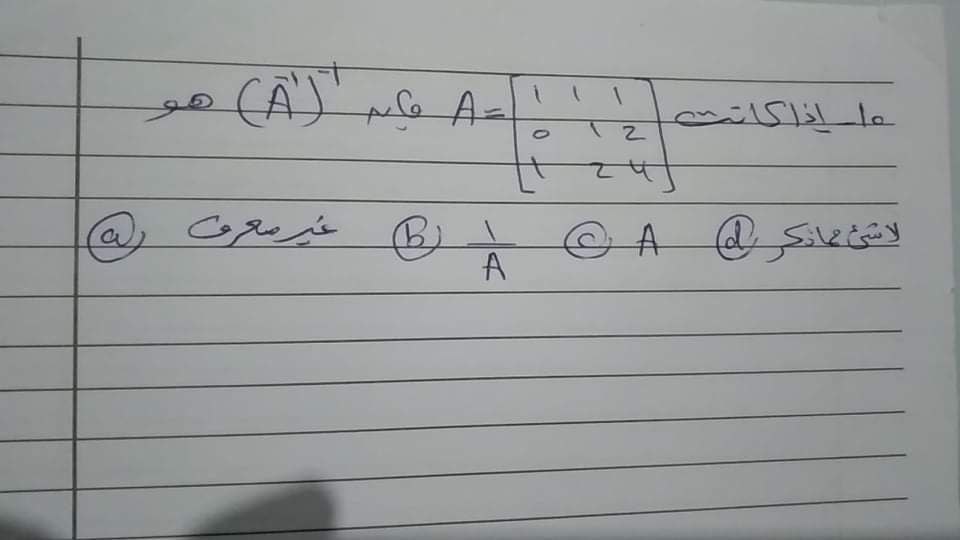 ١٥. إذا كانت A = [1 1 1
0 1 2
1 2 4] فإن (A⁻¹)⁻¹ هو
(a) غير معرف (b) 1/A (c) A (d) لا شئ مما ذكر